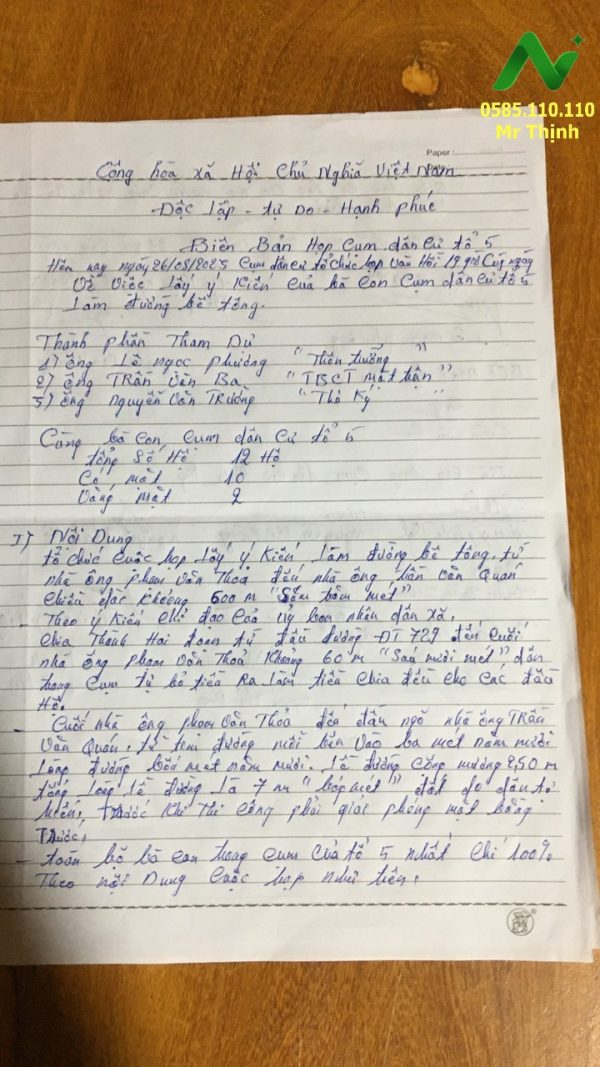 0585.110.110
Mr Thịnh
Paper :
Date
Cộng hòa xã Hội Chủ Nghĩa Việt Nam
Độc lập - tự Do - Hạnh phúc
Biên Bản Họp Cụm dân cư tổ 5
Hôm nay ngày 26/08/2025 Cụm dân cư tổ chức họp vào Hồi 19 giờ Cùng ngày
Về Việc lấy ý Kiến của bà con Cụm dân cư tổ 5
Làm đường bê tông.
Thành phần Tham Dự
1) ông Lê ngọc phương "Thôn trưởng"
2) ông Trần Văn Ba "TBCT mặt trận"
3) ông nguyễn Văn Trường "Thơ Ký"
Cùng bà con cụm dân cư tổ 5
tổng Số Hộ 12 Hộ
Có mặt 10
Vắng mặt 2
I) Nội Dung
tổ chức cuộc họp lấy ý Kiến làm đường bê tông. từ
nhà ông phạm Văn Thoả đến nhà ông Văn Quán
chiều dài Khoảng 600 m
Theo ý Kiến chỉ đạo của Uỷ ban nhân dân xã.
chia Thành Hai đoạn từ đầu đường ĐT 729 đến cuối
nhà ông phạm Văn Thoả Khoảng 60 m "Sáu mươi mét" dân
trong Cụm tự bỏ tiền Ra làm tiền chia đều cho các đầu
Hộ.
- Cuối nhà ông phạm Văn Thoả đến đầu ngõ nhà ông Trần
Văn Quán. từ tim đường mỗi bên vào ba mét năm mươi
lòng đường bốn mét năm mươi. lề đường cộng mương 2,50 m
tổng lòng lề đường là 7 m "bảy mét" đất do dân tự
Hiến, trước Khi Thi công phải giải phóng mặt bằng
Trước.
- toàn bộ bà con trong cụm của tổ 5 nhất chí 100%
Theo nội Dung cuộc họp như trên.